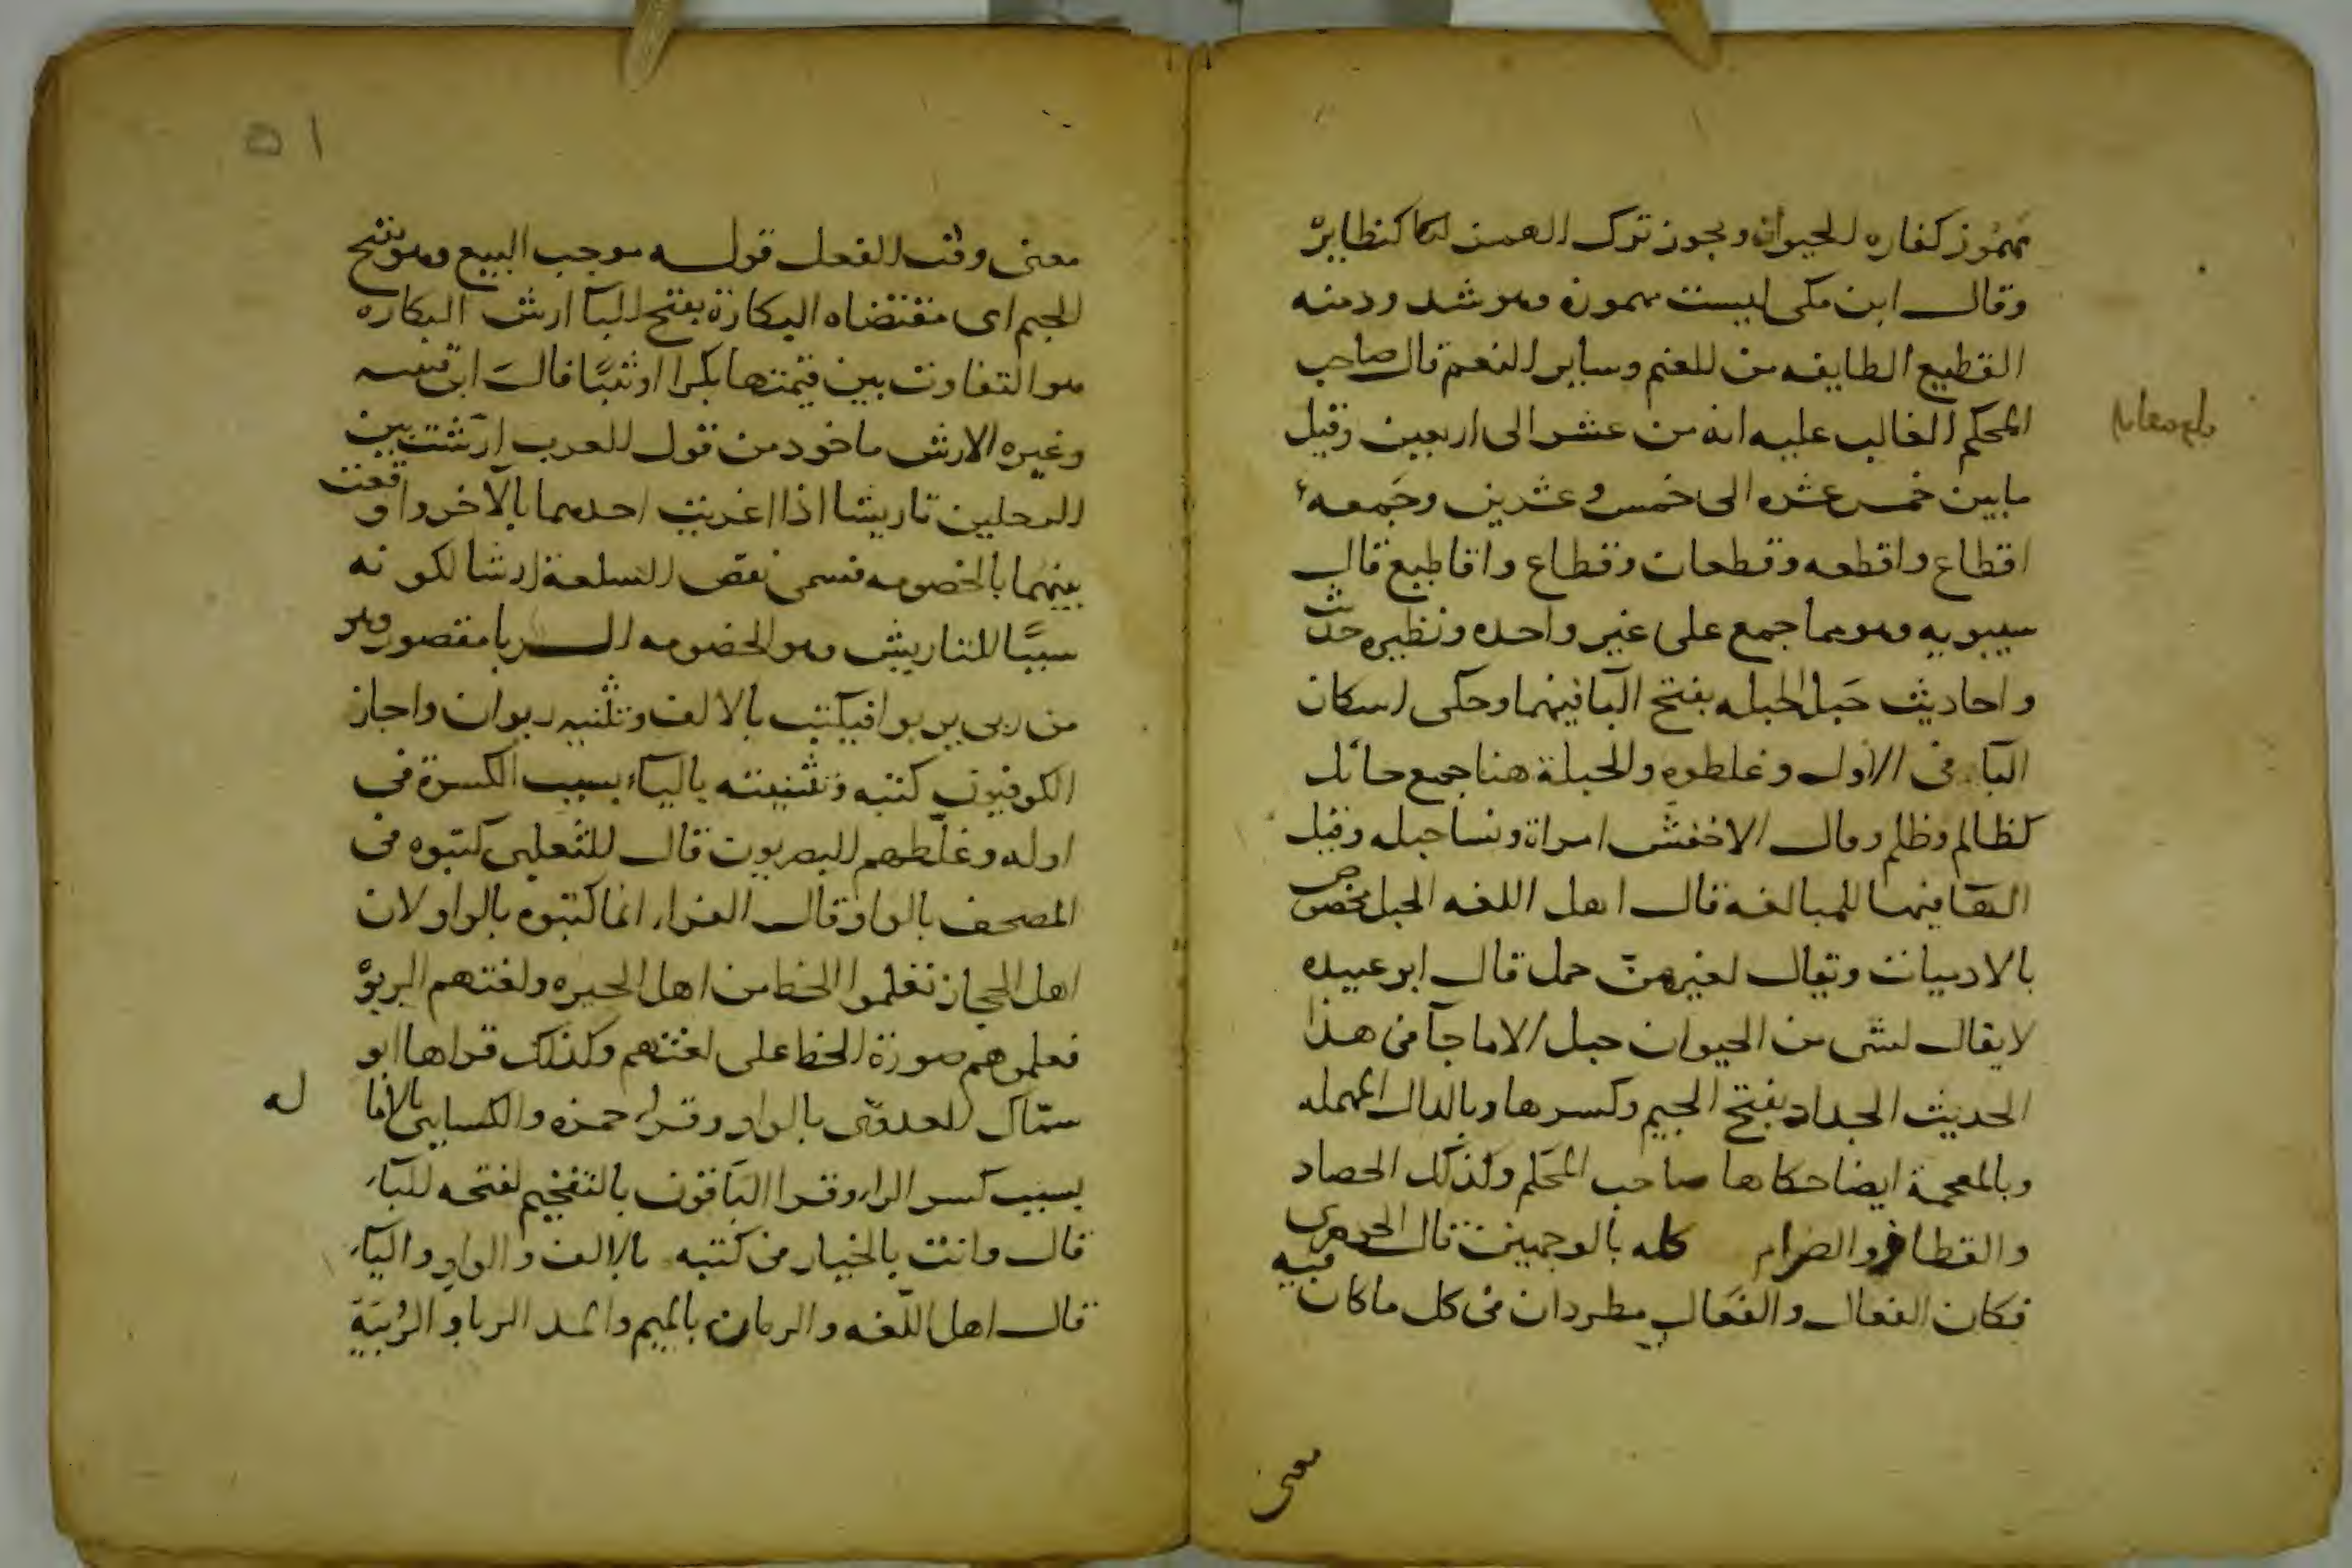 مهموز كفاره الحيوان ويجوز ترك الهمز كنظايره
وقال ابن مكى ليست بمهموزه وهو شذوذ منه
القطيع الطايفه من الغنم وساير النعم قال صاحب
المحكم الغالب عليه انه من عشر الى اربعين وقيل
ما بين خمس عشره الى خمس وعشرين وجمعه
اقطاع واقطعه وقطعات وقطاع واقاطيع قال
سيبويه وهو مما جمع على غير واحده ونظيره حديث
واحاديث حَبل الحبله بفتح البا فيهما وحكى اسكان
البا فى الاول وغلطوه والحبلة هنا جمع حائل
كظالم وظلم وقال الاخفش امراة ونسا حبله وقيل
الهآ فيهما للمبالغه قال اهل اللغه الحبل مخصوص
بالادميات ويقال لغيرهن حمل قال ابو عبيده
لا يقال لشى من الحيوان حبل الا ما جآ فى هذا
الحديث الجداد بفتح الجيم وكسرها وبالدال المهمله
وبالمعجمة ايضا حكاها صاحب المحكم وكذلك الحصاد
والقطاف والصرام كله بالوجهين قال الجوهرى
فكان الفعال والفعال مطردان فى كل ما كان فيه
معنى
بلغ مقابله
٥١
معنى وقت الفعل قوله موجب البيع وهو بفتح
الجيم اى مقتضاه البكارة بفتح البآ ارش البكاره
هو التفاوت بين قيمتها بكرا او ثيبًا قال ابن قتيبه
وغيره الارش ماخوذ من قول العرب ارشت بين
الرجلين تاريشا اذا اغريت احدهما بالآخر واوقعت
بينهما الخصومه فسمى نقص السلعة ارشا لكونه
سببًا للتاريش وهو الخصومه الربا مقصور وهو
من ربى يربوا فيكتب بالالف وتثنيه ربوان واجاز
الكوفيون كتبه وتثنيته باليآء بسبب الكسرة فى
اوله وغلّطهم البصريون قال الثعلبى كتبوه فى
المصحف بالواو قال الفراء انما كتبوه بالواو لان
اهل الحجاز تعلموا الخط من اهل الحيره ولغتهم الربوْ
فعلموهم صورة الخط على لغتهم وكذلك قراها ابو
سمّاك العدوى بالواو وقراء حمزه والكسايى بالاماله
بسبب كسر الراء وقرا البآقون بالتفخيم لفتحه البآء
قال وانت بالخيار من كتبه بالالف والواو واليآء
قال اهل اللغه والرمان بالميم والمد الربا والرُبيَة